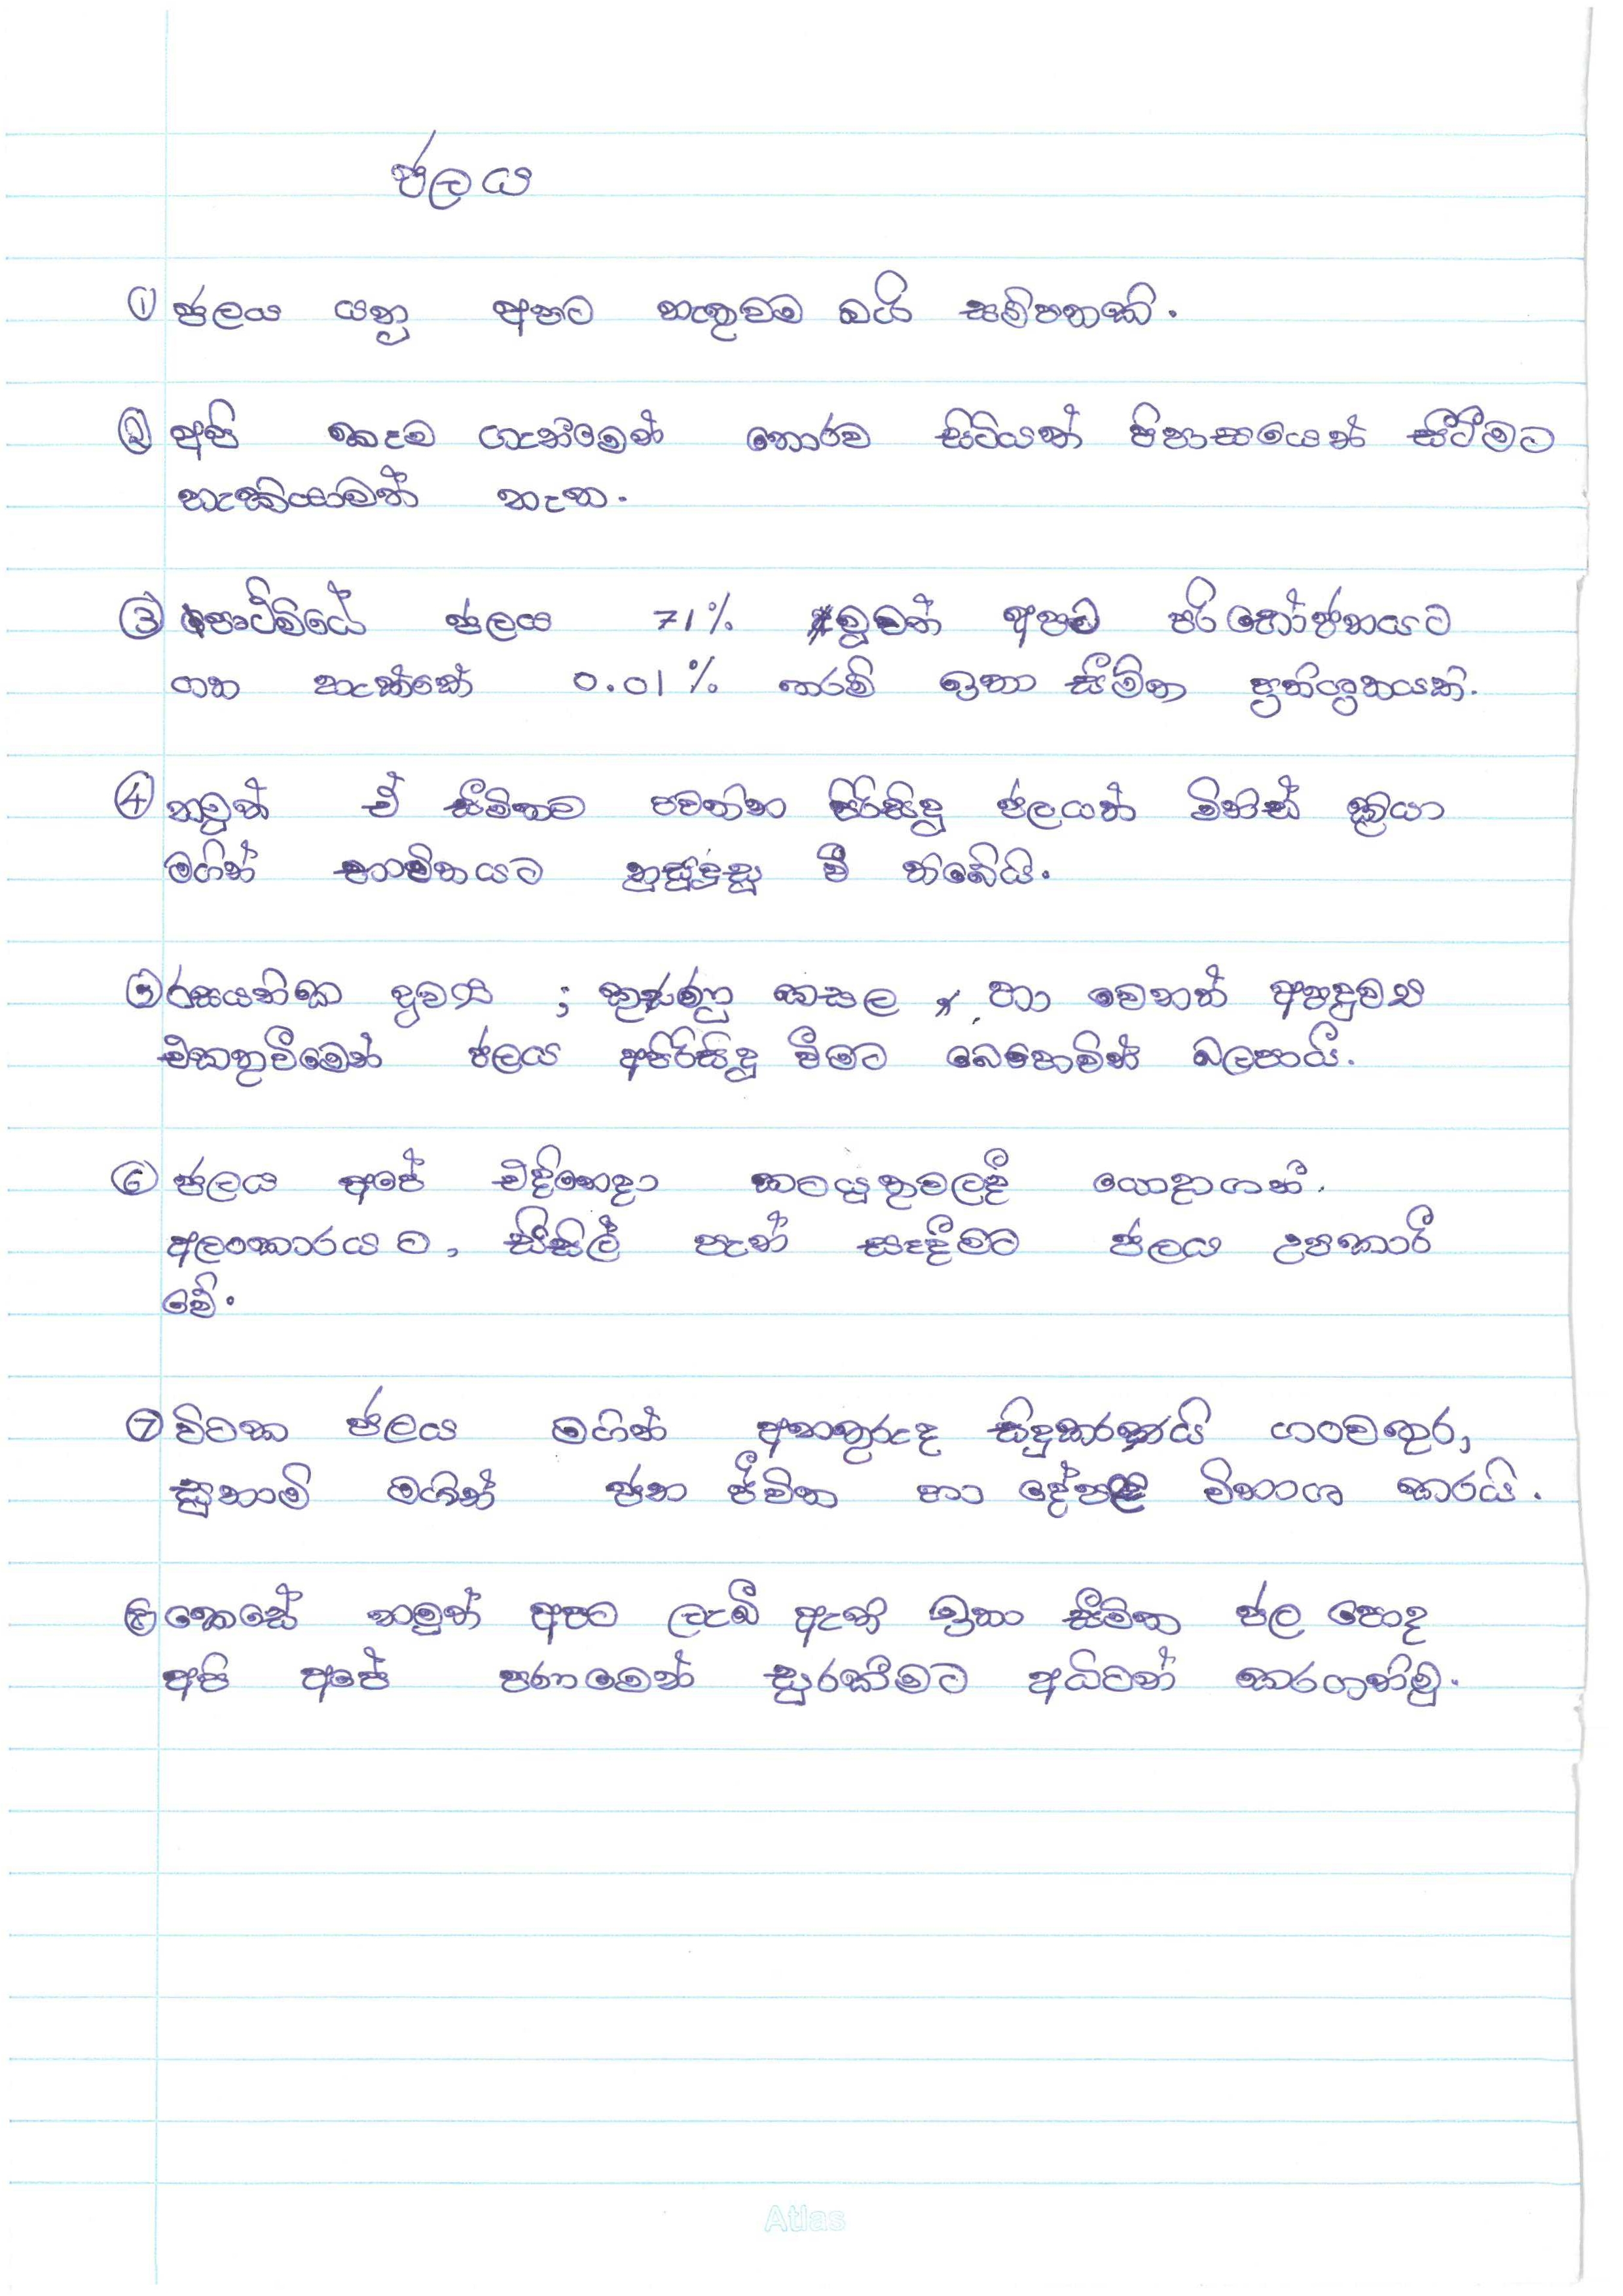 ජලය
① ජලය යනු අපට නැතුවම බැරි සම්පතකි.
② අපි කෑම ගැන්මෙන් තොරව සිටියත් පිපාසයෙන් සීටීමට
හැකියාවත් නැත.
③ පෘථිවියේ ජලය 71% වුවත් අපට පරිභෝජනයට
ගත හැක්කේ 0.01% තරම් ඉතා සීමිත ප්‍රතිශතයකි.
④ නමුත් ඒ සීමිතව පවතින පිරිසිදු ජලයත් මිනිස් ක්‍රියා
මගින් භාවිතයට නුසුදුසු වී තිබේයි.
⑤ රසයනික ද්‍රව්‍ය ; කුණු කසල , හා වෙනත් අපද්‍රව්‍ය
එකතුවීමෙන් ජලය අපිරිසිදු වීමට බෙහෙවින් බලපායි.
⑥ ජලය අපේ එදිනෙදා කටයුතුවලදී යොදාගනී.
අලංකාරයට, සිසිල් පැන් සෑදීමට ජලය උපකාරී
වේ.
⑦ විටක ජලය මගින් අනතුරුද සිදුකරණයි ගංවතුර,
සුනාමි මගින් ජන ජීවිත හා දේපළ විනාශ කරයි.
⑧ කෙසේ නමුත් අපට ලැබී ඇති ඉතා සීමිත ජල පොද
අපි අපේ පණමෙන් සුරකීමට අධිටන් කරගනිමු.
Atlas